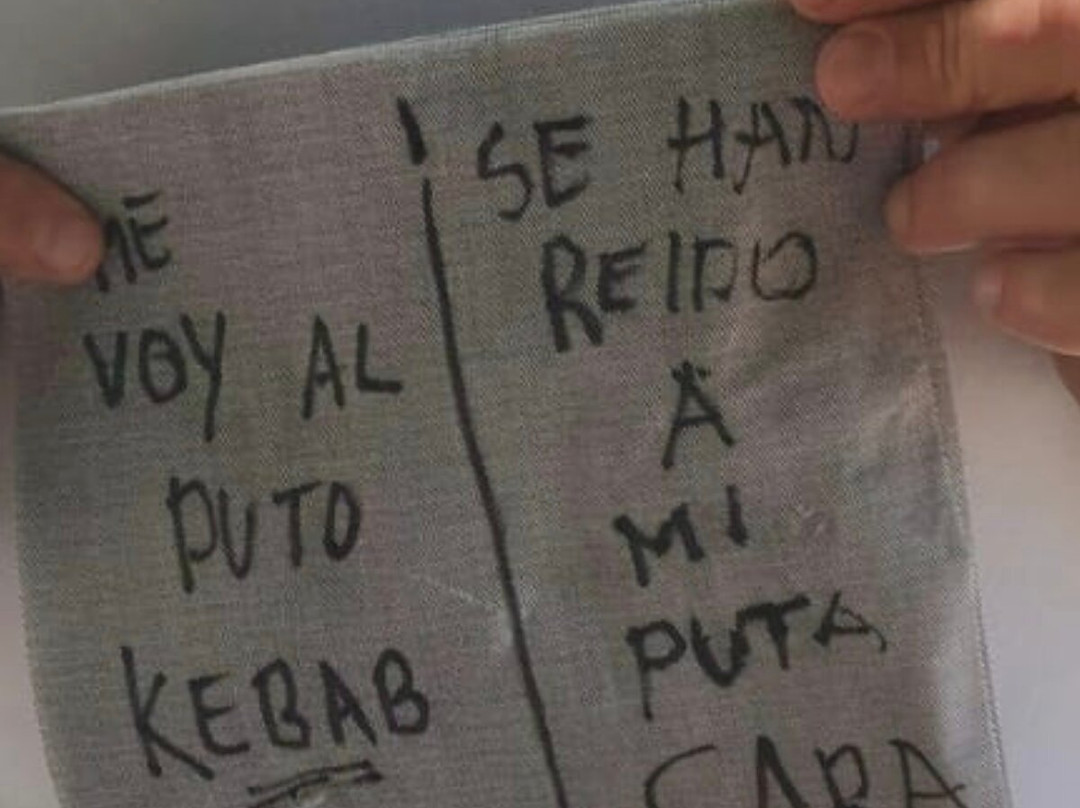 ME
VOY AL
PUTO
KEBAB
SE HAN
REIDO
A
MI
PUTA
CARA